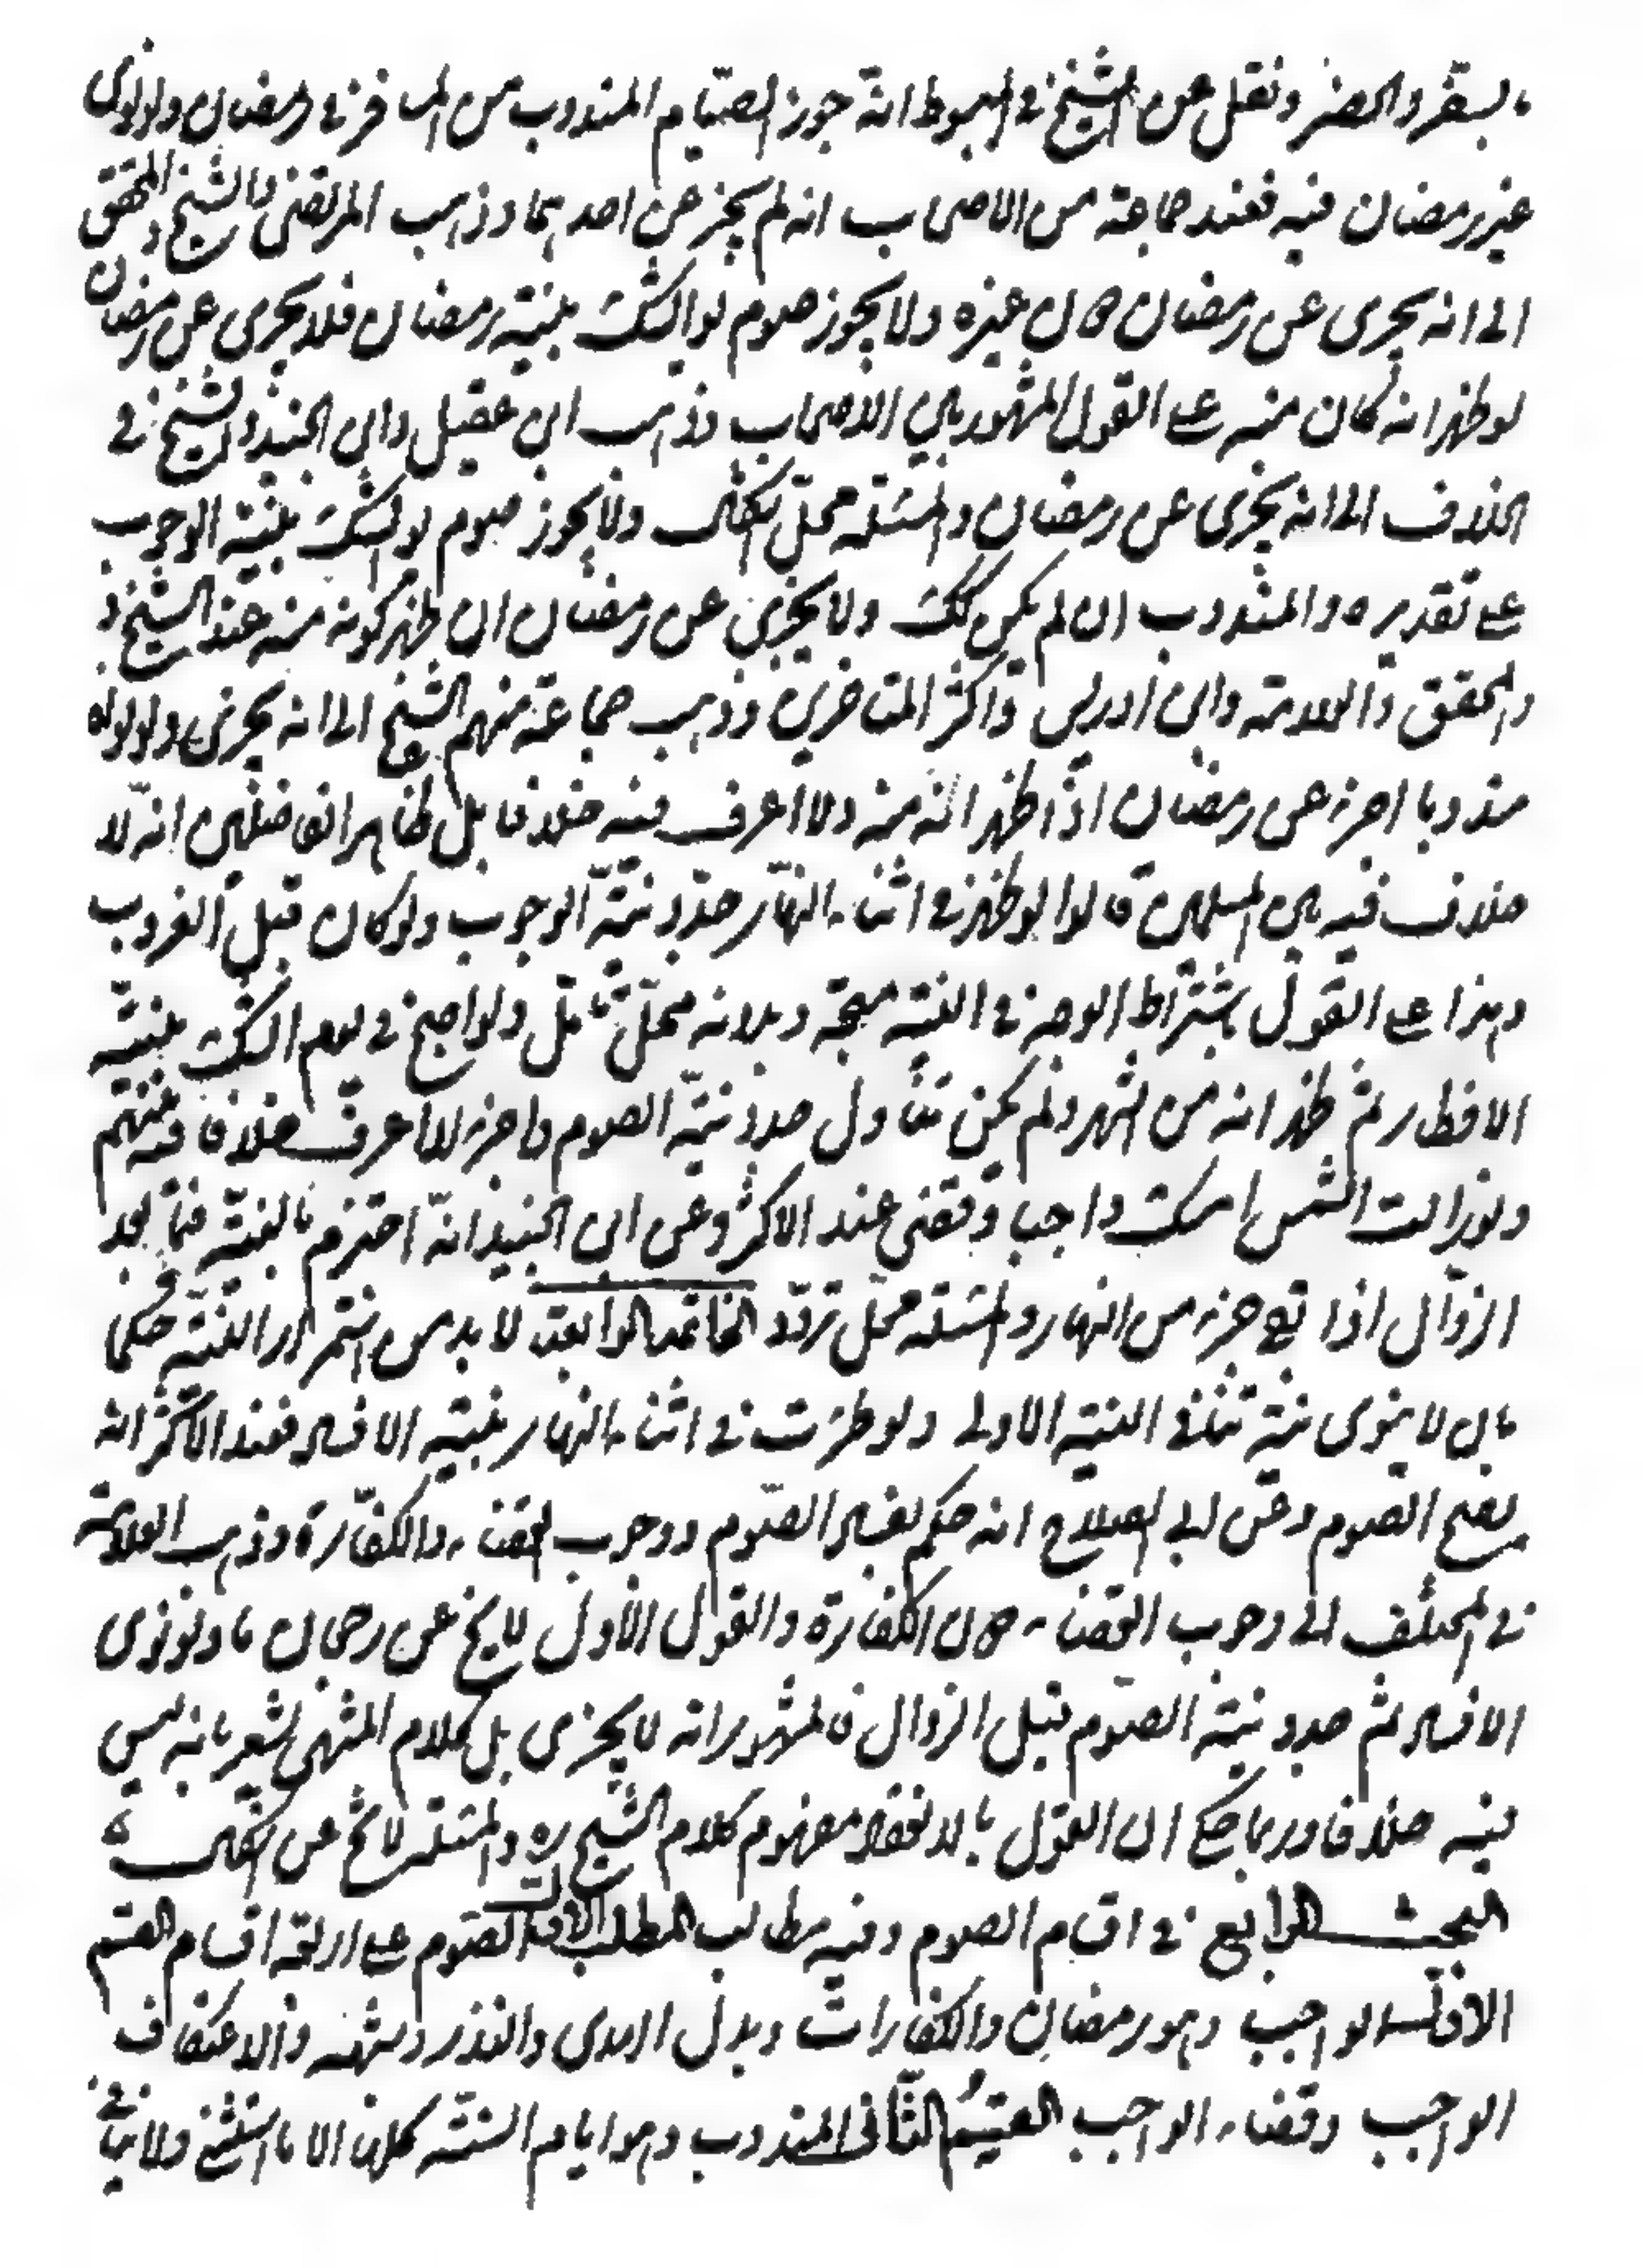 بالسفر والحضر ونقل عن الشيخ في المبسوط انه جوز الصيام المندوب من المسافر في رمضان ولو نوى
غير رمضان فيه فعند جماعة من الاصحاب انه لم يجز عن احدهما وذهب المرتضى والشيخ والمحقق
الى انه يجزى عن رمضان دون غيره ولا يجوز صوم يوم الشك بنية رمضان فلا يجزى عن رمضان
لو ظهر انه كان منه على القول المشهور بين الاصحاب وذهب ابن عقيل وابن الجنيد والشيخ في
الخلاف الى انه يجزى عن رمضان والمسئلة محل اشكال ولا يجوز صوم يوم الشك بنية الوجوب
على تقديره والمندوب ان لم يكن كك ولا يجزى عن رمضان ان ظهر كونه منه عند الشيخ
والمحقق والعلامة وابن ادريس واكثر المتاخرين وذهب جماعة منهم الشيخ الى انه يجزى ولو نواه
مندوبا اجزء عن رمضان اذا ظهر انه منه ولا اعرف فيه خلافا بل ظاهر الفاضلين انه لا
خلاف فيه بين المسلمين قالوا لو ظهر في اثناء النهار جدد نية الوجوب ولو كان قبل الغروب
وهذا على القول باشتراط الوجه في النية متجه وبدونه محل تامل ولو اصبح في يوم الشك بنية
الافطار ثم ظهر انه من الشهر ولم يكن تناول جدد نية الصوم واجزء لا اعرف خلافا فيه بينهم
ولو زالت الشمس امسك واجبا وقضى عند الاكثر وعن ابن الجنيد انه اجتزء بالنية فيما بعد
الزوال اذا بقي جزء من النهار والمسئلة محل تردد الخامسة الرابعة لا بد من استمرار النية حكما
بان لا ينوى نية تنافي النية الاولى ولو طرئت في اثناء النهار نية الافساد فعند الاكثر انه
يصح الصوم وعن ابى الصلاح انه حكم بفساد الصوم ووجوب القضاء والكفارة وذهب العلامة
في المختلف الى وجوب القضاء دون الكفارة والقول الاول لا يخ عن رجحان ما ولو نوى
الافساد ثم جدد نية الصوم قبل الزوال فالمشهور انه لا يجزى بل كلام المنتهى يشعر بانه ليس
فيه خلافا وربما حكى ان القول بالانعقاد مفهوم كلام الشيخ ره والمسئلة لا تخ عن اشكال
البحث الرابع في اقسام الصوم وفيه مطالب المطلب الاول الصوم على اربعة اقسام القسم
الاول الواجب وهو رمضان والكفارات وبدل الهدى والنذر وشبهه والاعتكاف
الواجب وقضاء الواجب القسم الثانى المندوب وهو ايام السنة كلها الا ما استثنى ولا ينافى